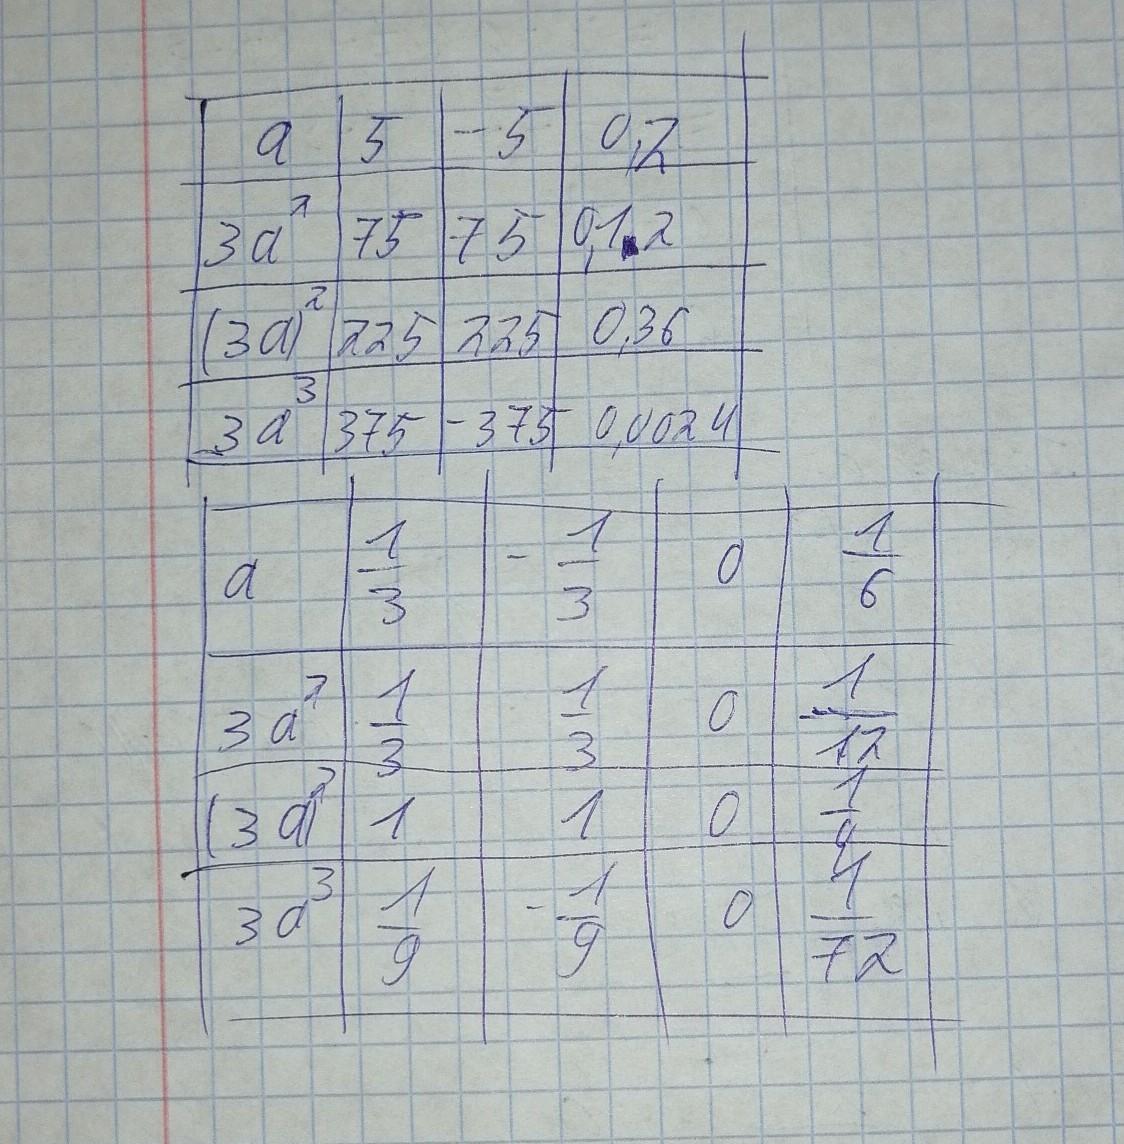 a 5 -5 0,2
3a² 75 75 0,12
(3a)² 225 225 0,36
3a³ 375 -375 0,0024
a 1/3 -1/3 0 1/6
3a² 1/3 1/3 0 1/12
(3a)² 1 1 0
3a³ 1/9 -1/9 0 1/72